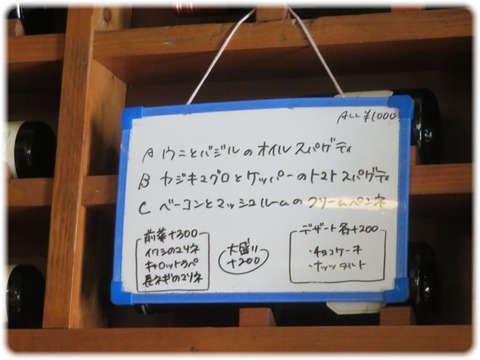 ALL ¥1000
A ウニとバジルのオイルスパゲティ
B カジキマグロとケッパーのトマトスパゲティ
C ベーコンとマッシュルームのクリームペンネ
前菜+300
イワシのマリネ
キャロットラペ
長ネギのマリネ
大盛り
+200
デザート各+200
・チョコケーキ
・ナッツタルト